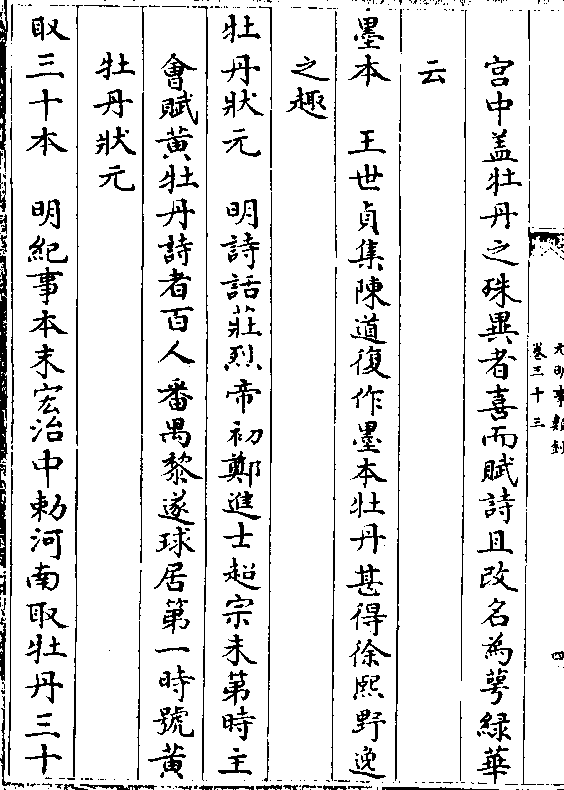 元明事類鈔
卷三十三
四
宮中蓋牡丹之殊異者喜而賦詩且改名為萼緑華
云
墨本　王世貞集陳道復作墨本牡丹甚得徐熙野逸
之趣
牡丹狀元　明詩話莊烈帝初鄭進士超宗未第時主
會賦黃牡丹詩者百人番禺黎遂球居第一時號黃
牡丹狀元
取三十本　明紀事本末宏治中勅河南取牡丹三十